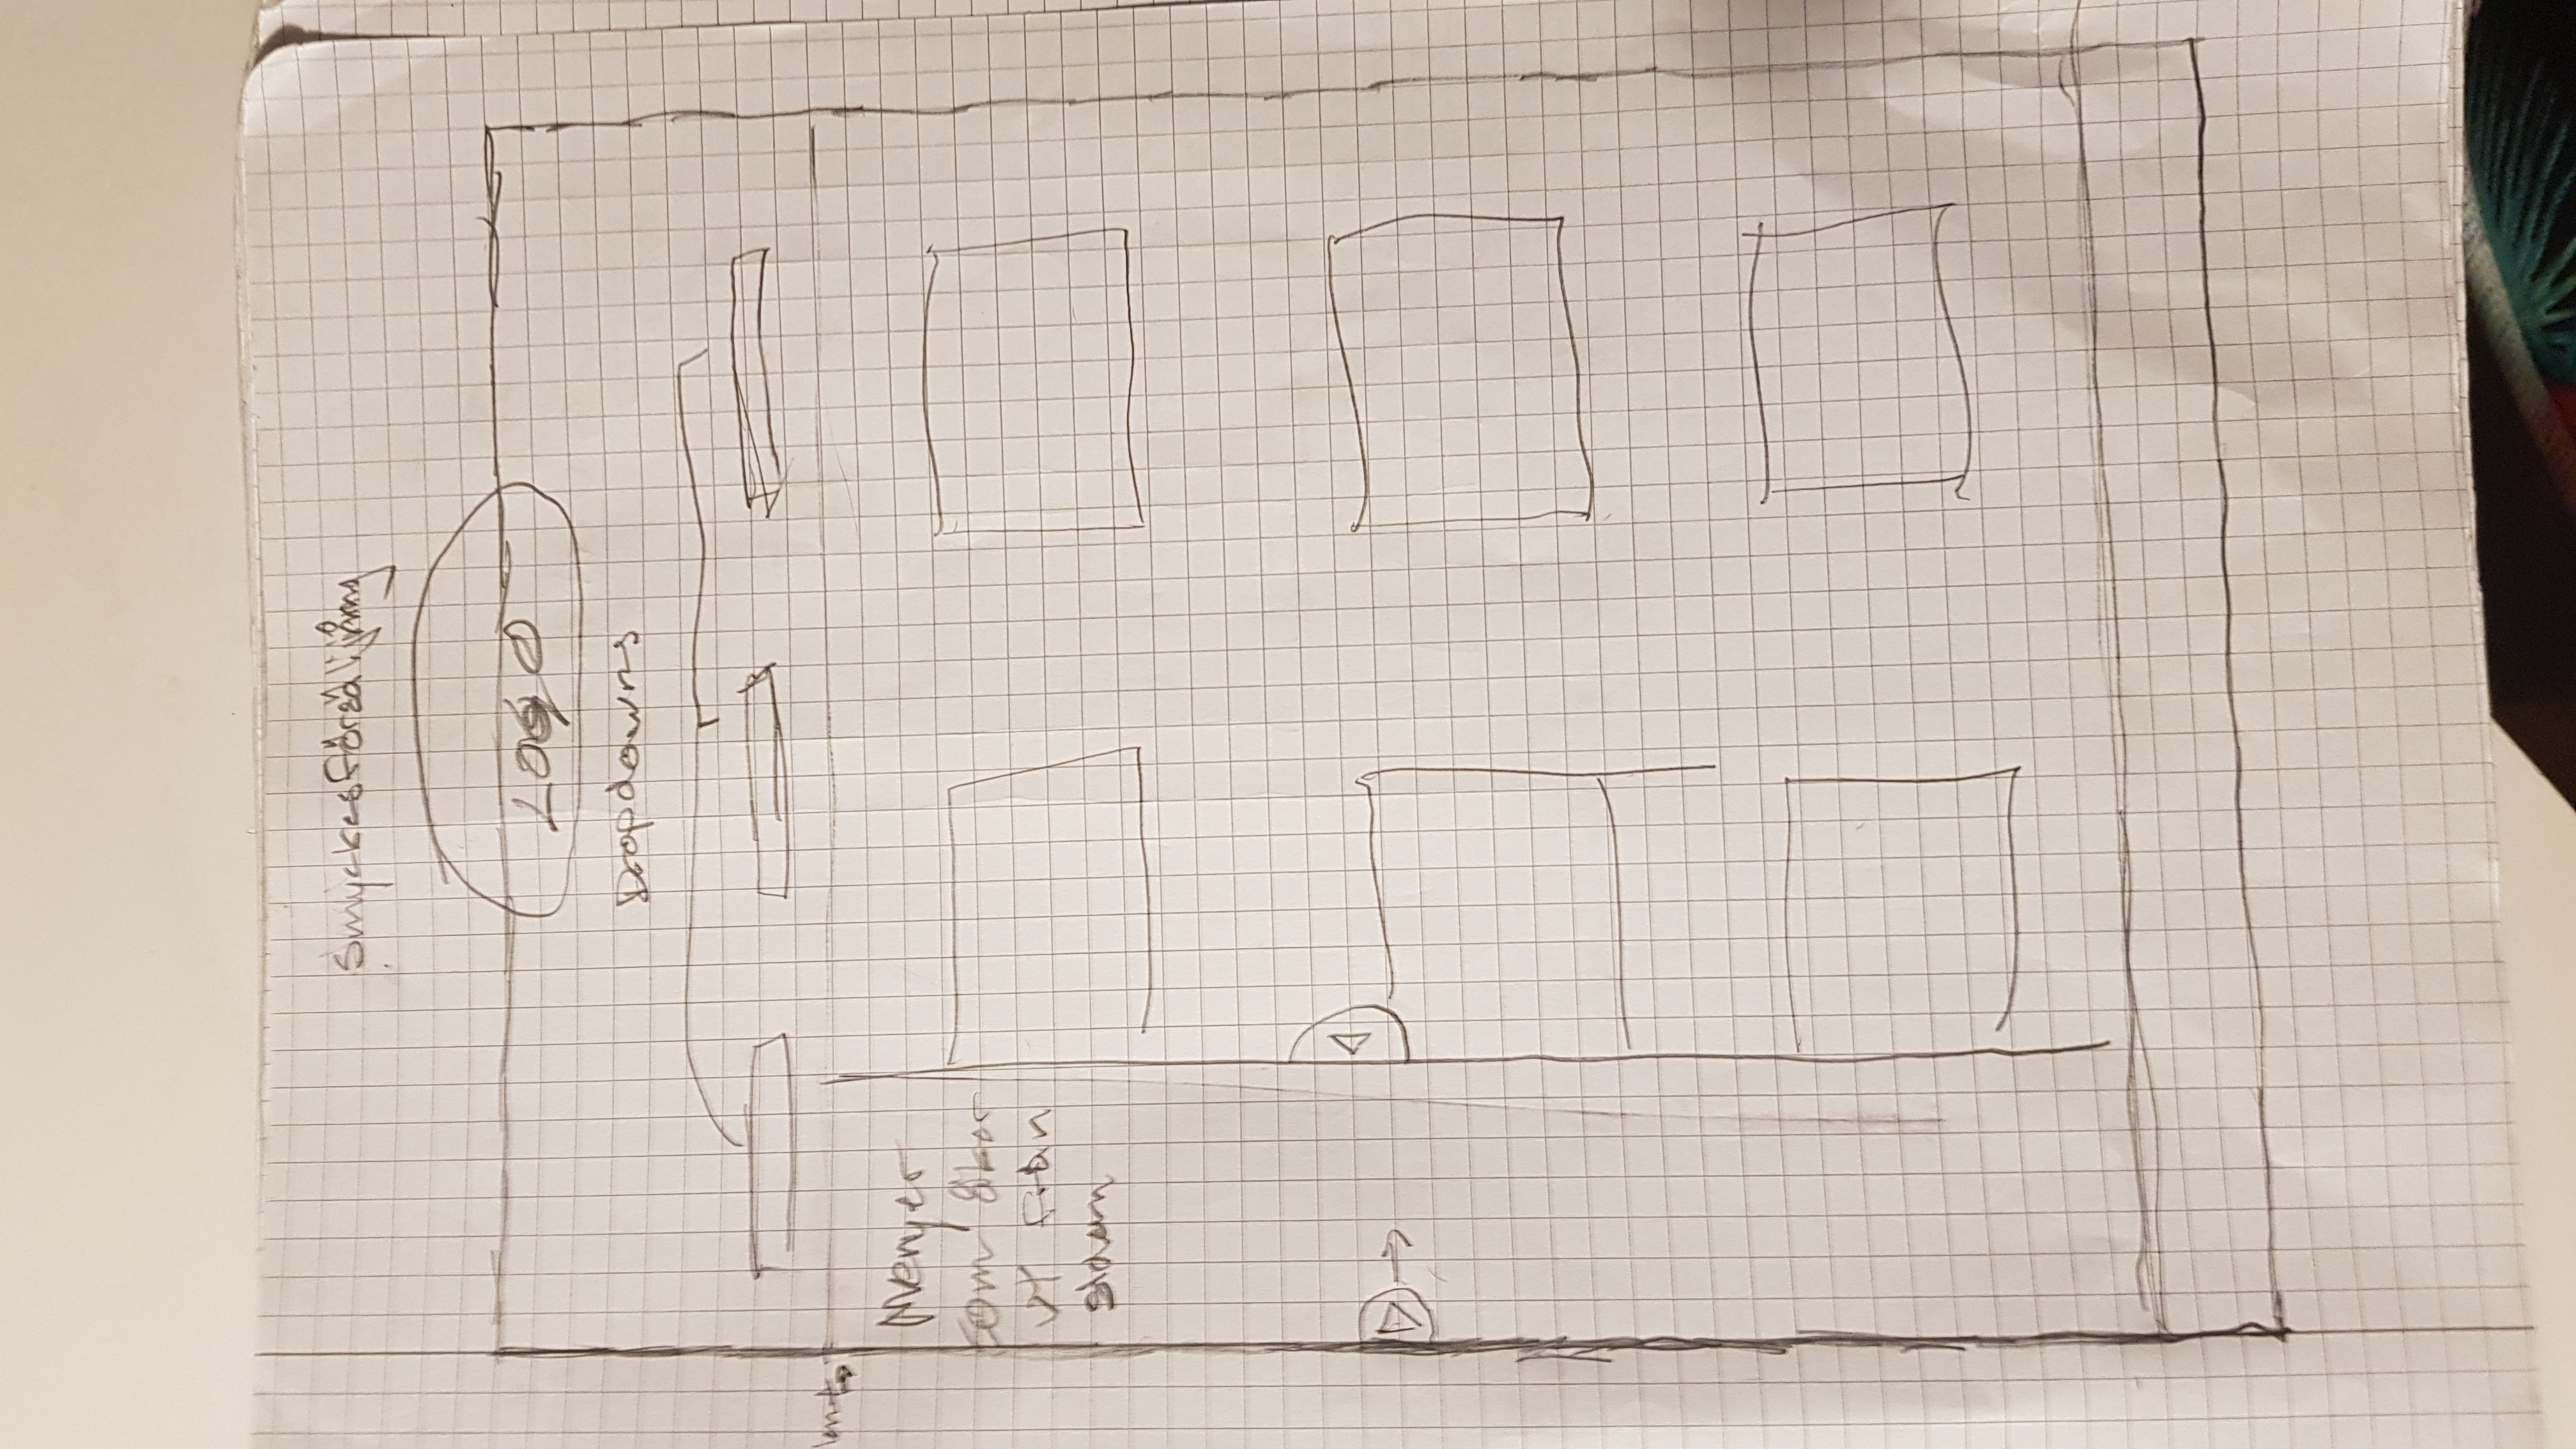 Smyckesförsäljning
LOGO
Dropdowns
Menyer
som åker
ut från
sidan